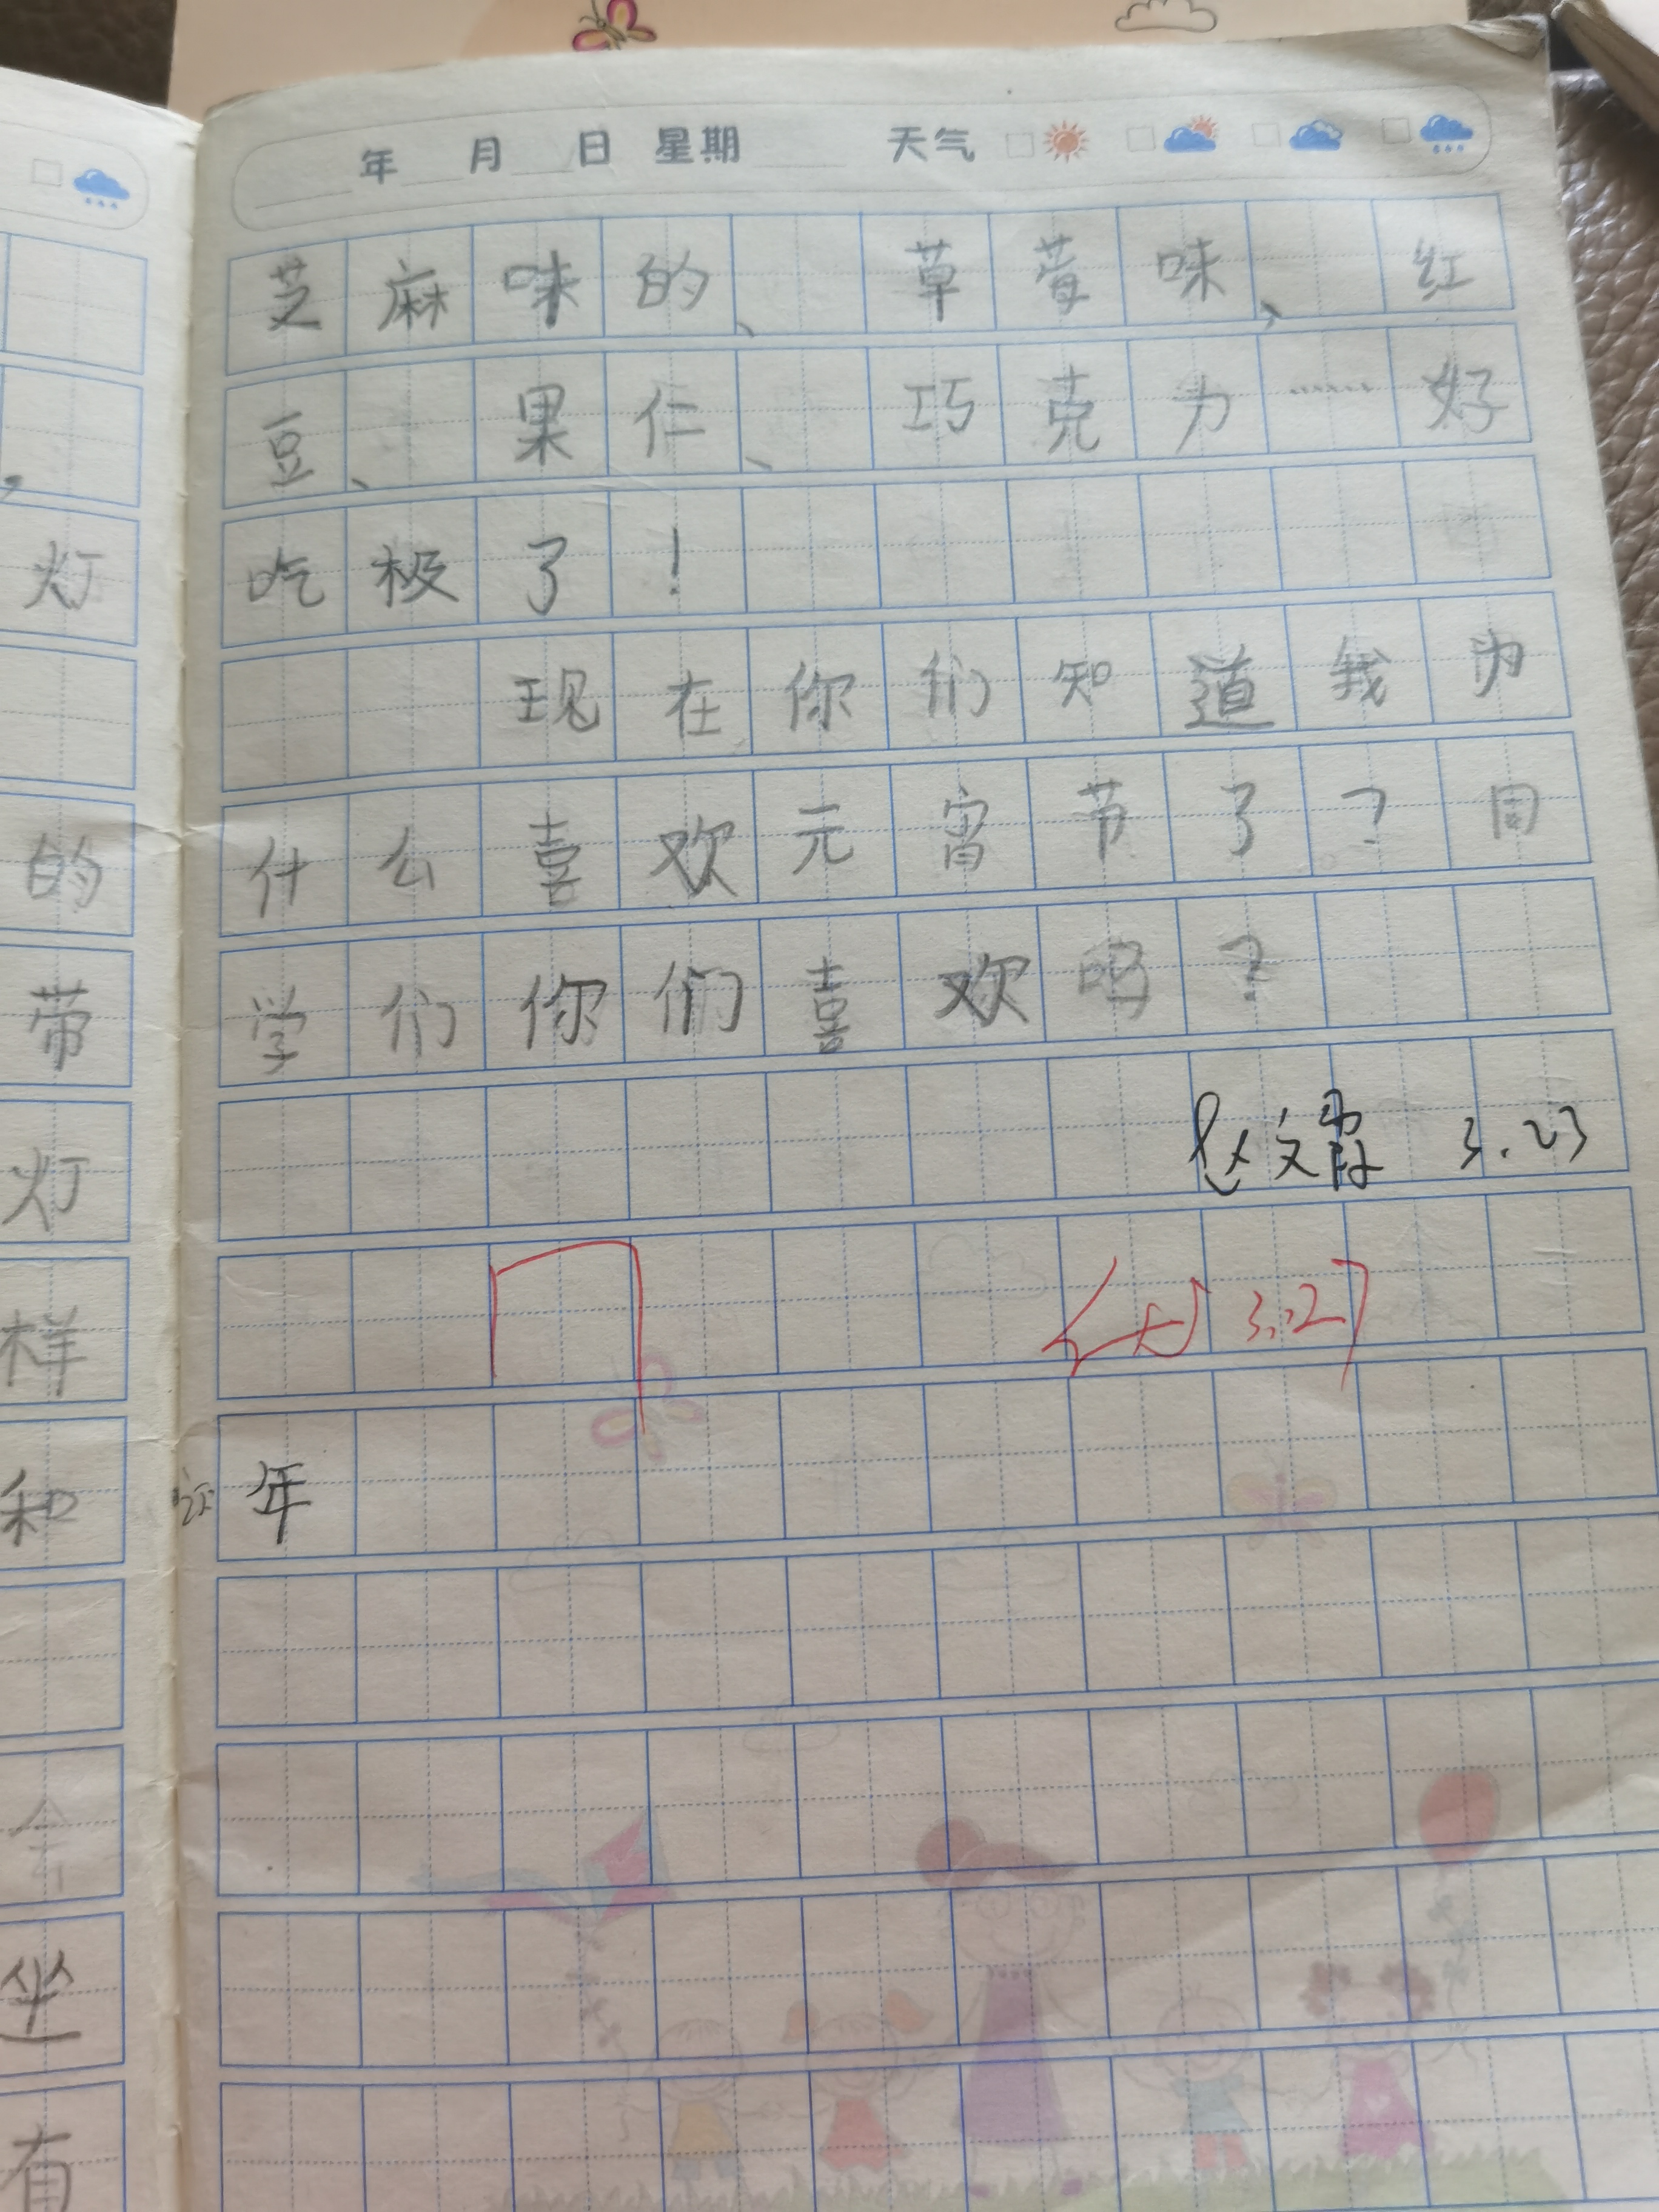 年 月 日 星期 天气
芝麻味的、草莓味、红
豆、果仁、巧克力……好
吃极了！
现在你们知道我为
什么喜欢元宵节了？同
学们你们喜欢吗？
赵文霞 3.23
3.27
年
灯
的
带
灯
样
和
坐
有